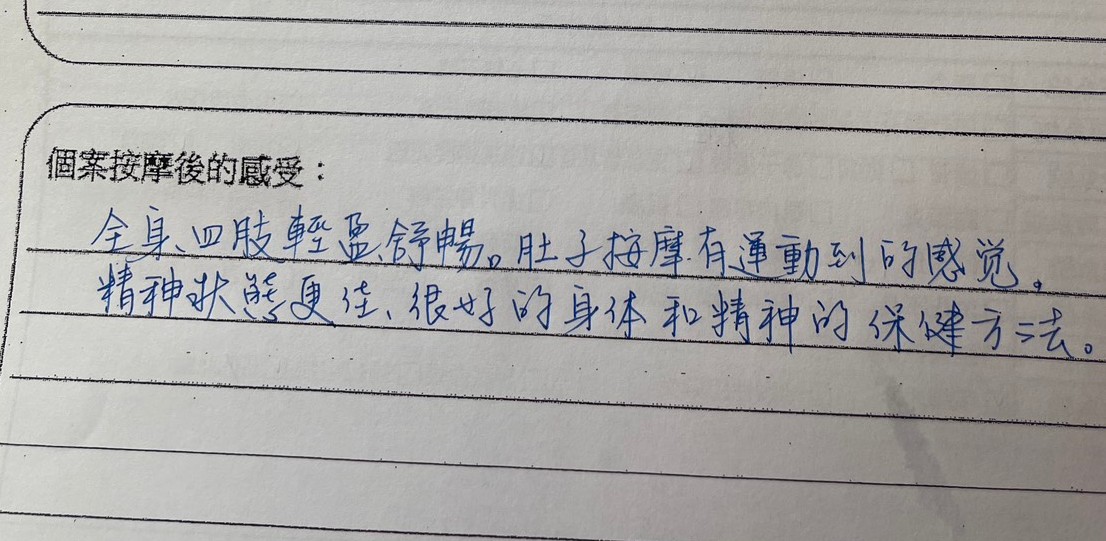 個案按摩後的感受：
全身、四肢輕盈舒暢。肚子按摩有運動到的感觉。
精神狀態更佳、很好的身体和精神的保健方法。